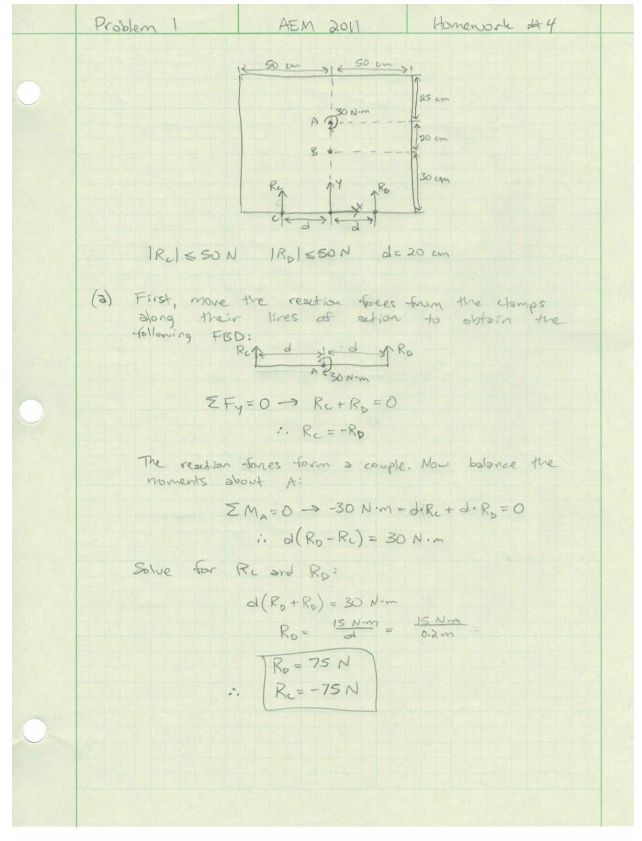 Problem 1 AEM 2011 Homework #4
50 cm 50 cm
25 cm
30 N·m
A
20 cm
B
30 cm
Rc y RD
x
C
d d
|Rc| ≤ 50 N |RD| ≤ 50 N d = 20 cm
(a) First, move the reaction forces from the clamps
along their lines of action to obtain the
following FBD:
Rc d d RD
A 30 N·m
ΣFy = 0 → Rc + RD = 0
∴ Rc = -RD
The reaction forces form a couple. Now balance the
moments about A:
ΣMA = 0 → -30 N·m - d·Rc + d·RD = 0
∴ d(RD - Rc) = 30 N·m
Solve for Rc and RD:
d(RD + RD) = 30 N·m
RD = 15 N·m / d = 15 N·m / 0.2 m =
RD = 75 N
∴ Rc = -75 N